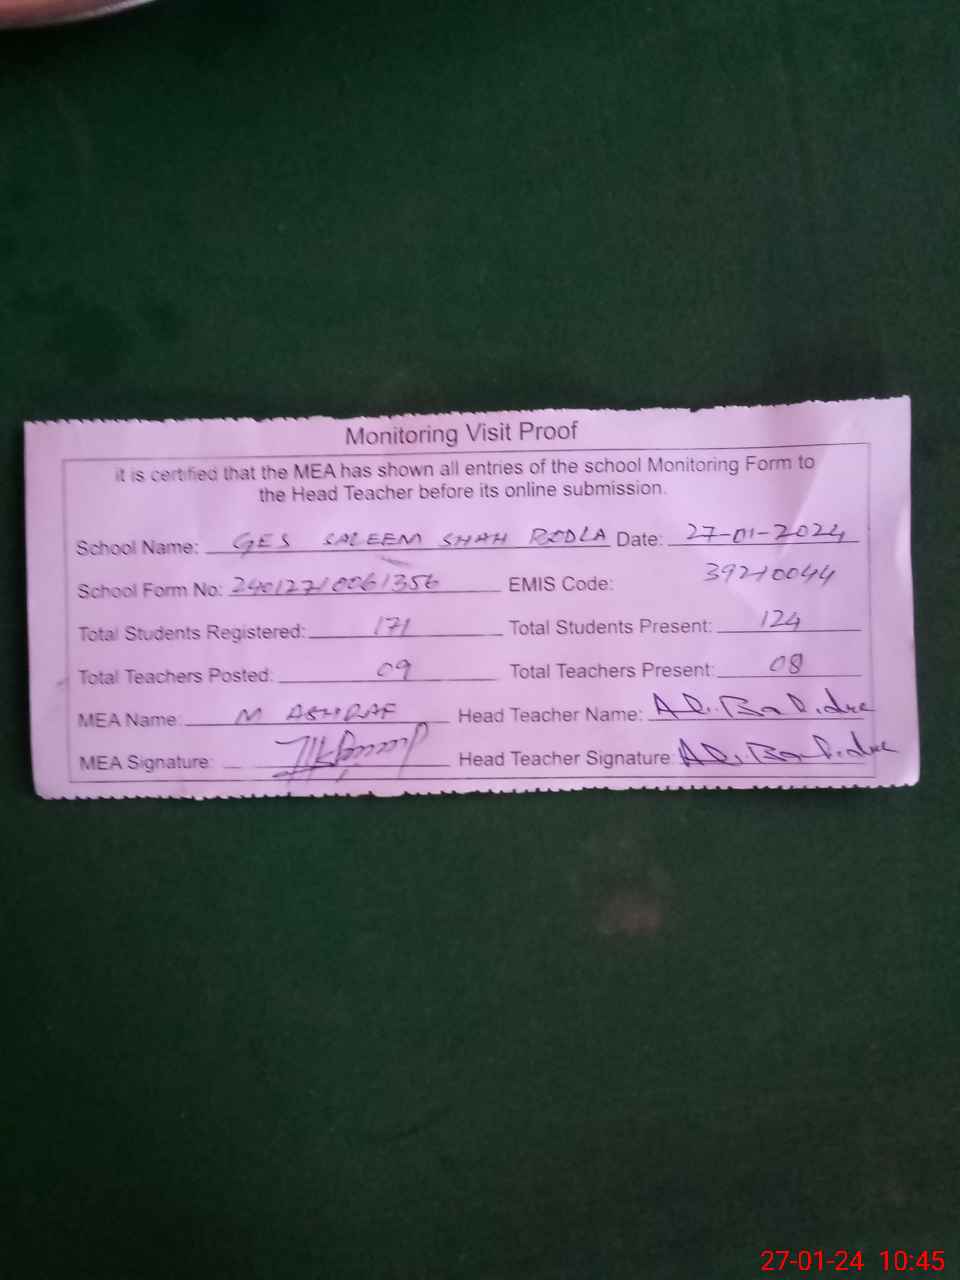 Monitoring Visit Proof
it is certified that the MEA has shown all entries of the school Monitoring Form to
the Head Teacher before its online submission.
School Name: GES SALEEM SHAH RODLA Date: 27-01-2024
School Form No: 24012710061356 EMIS Code: 39210044
Total Students Registered: 171 Total Students Present: 124
Total Teachers Posted: 09 Total Teachers Present: 08
MEA Name: M ASHRAF Head Teacher Name:
MEA Signature: Head Teacher Signature:
27-01-24 10:45